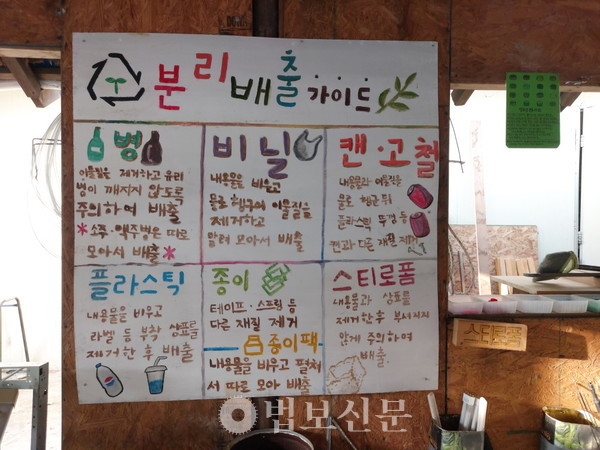 분리배출가이드
병
이물질은 제거하고 유리
병이 깨지지 않도록
주의하여 배출
*소주·맥주병은 따로
모아서 배출*
비닐
내용물을 비우고
물로 헹구어 이물질을
제거하고
말려 모아서 배출
캔·고철
내용물과 이물질을
물로 헹군 뒤
플라스틱 뚜껑 등
캔과 다른 재질 제거
플라스틱
내용물을 비우고
라벨 등 부착 상표를
제거한 후 배출
종이
테이프·스프링 등
다른 재질 제거
종이팩
내용물을 비우고 펼쳐
서 따로 모아 배출
스티로폼
내용물과 상표를
제거한 후 부서지지
않게 주의하여
배출.
스티로폼
법보신문